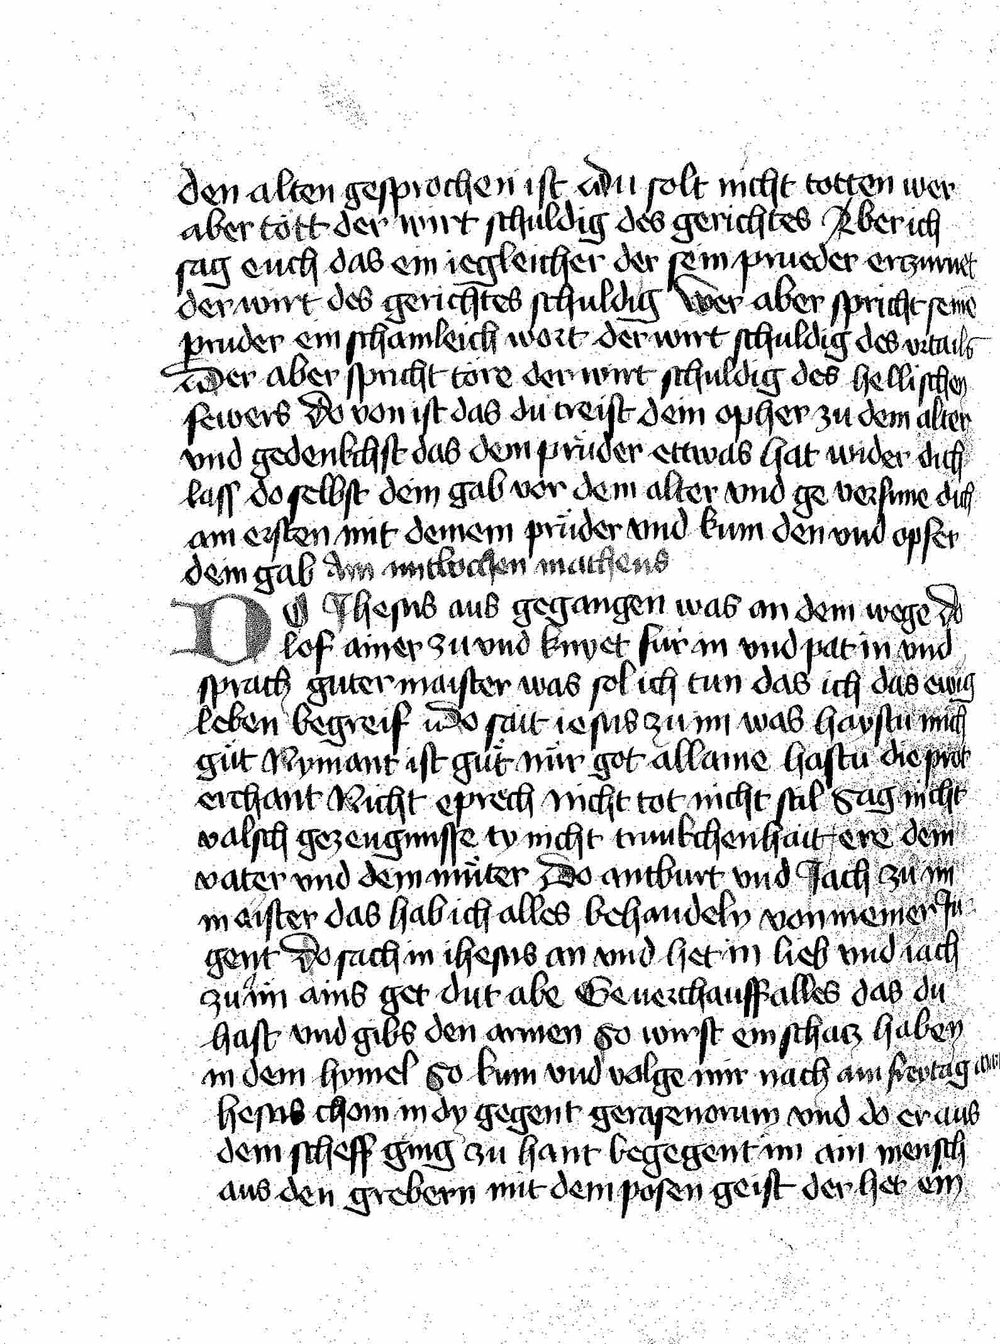 den alten gesprochen ist du solt nicht totten wer
aber tott der wirt schuldig des gerichtes Aber ich
sag euch das ein iegleicher der sein prueder erzurnet
der wirt des gerichtes schuldig Wer aber spricht seinē
pruder ein schamleich wort der wirt schuldig des vrtails
Wer aber spricht tore der wirt schuldig des hellischen
fewers Do von ist das du treist dein opher zu dem alter
vnd gedenkchst das dein průder ettwas hat wider dich
lass do selbst dein gab vor dem alter vnd ge versune dich
am ersten mit deinem průder vnd kum den vnd opfer
dein gab Am mitbochen matheus
DO Jhesus aus gegangen was an dem wege do
lof ainer zu vnd knyet fur in vnd pat in vnd
sprach guter maister was sol ich tun das ich das ewig
leben begreif Do sait iesus zu im was haystu mich
gůt Nymant ist gůt nůr got allaine hastu die pot
erchant Nicht eprech nicht tot nicht stil Sag nicht
valsch gezeugnusse ty nicht trunkchenhait ere dein
vater vnd dein můter Do antburt vnd Jach zu im
maister das hab ich alles behandeln von meiner Ju
gent Do sach in ihesus an vnd het in lieb vnd iach
zu im ains get dir abe Ge verchauff alles das du
hast vnd gibs den armen So wirst ein schacz haben
in dem hymel So kum vnd volge mir nach am freytag
hesus chom in dy gegent gerasenorum vnd do er aus
dem scheff ging zu hant begegent im ain mensch
aus den grebern mit dem posen geist der het ein